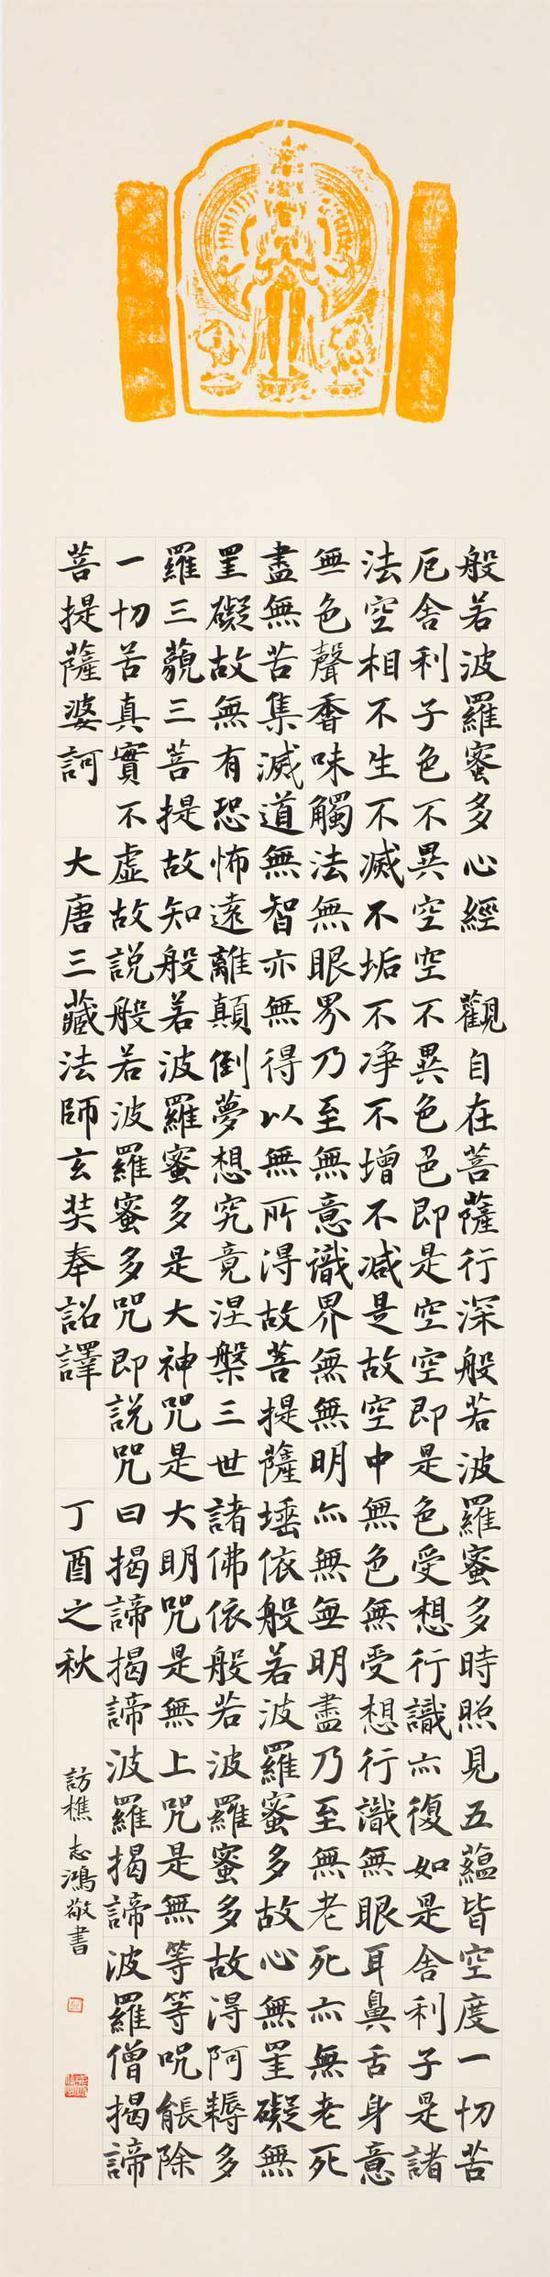 般若波羅蜜多心經 觀自在菩薩行深般若波羅蜜多時照見五蘊皆空度一切苦
厄舍利子色不異空空不異色色即是空空即是色受想行識亦復如是舍利子是諸
法空相不生不滅不垢不净不增不減是故空中無色無受想行識無眼耳鼻舌身意
無色聲香味觸法無眼界乃至無意識界無無明亦無無明盡乃至無老死亦無老死
盡無苦集滅道無智亦無得以無所得故菩提薩埵依般若波羅蜜多故心無罣礙無
罣礙故無有恐怖遠離顛倒夢想究竟涅槃三世諸佛依般若波羅蜜多故得阿耨多
羅三藐三菩提故知般若波羅蜜多是大神咒是大明咒是無上咒是無等等呪能除
一切苦真實不虛故説般若波羅蜜多咒即説咒曰揭諦揭諦波羅揭諦波羅僧揭諦
菩提薩婆訶 大唐三藏法師玄奘奉詔譯 丁酉之秋 訪樵志鴻敬書